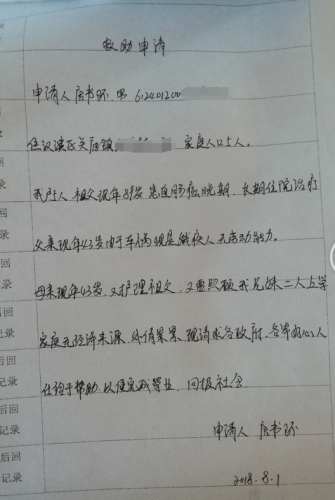 救助申请
申请人 唐书环 男 612401200
住汉滨区关庙镇 家庭人口5人。
我户5人 祖父现年89岁 患直肠癌晚期 长期住院治疗
父亲现年43岁由于车祸现是残疾人无劳动能力。
母亲现年43岁,又护理祖父,又要照顾我兄妹二人上学
家庭无经济来源 债务累累 现请求各政府 各界爱心人
士给于帮助 以便完成学业 回报社会
申请人 唐书环
2018.8.1
后回
记录
后回
记录
后回
记录
后回
记录